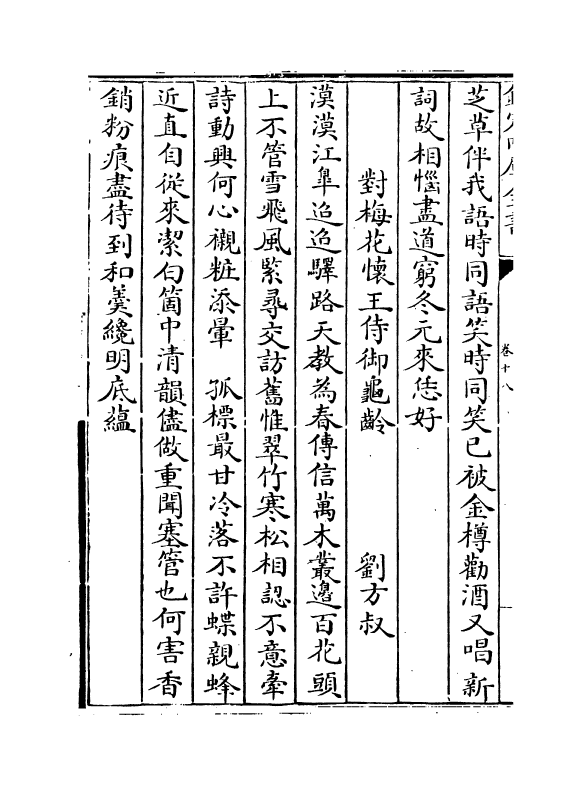 卷十八
芝草伴我語時同語笑時同笑已被金樽勸酒又唱新
詞故相惱盡道窮冬元來恁好
對梅花懷王侍御龜齡　劉方叔
漠漠江臯迢迢驛路天教為春傳信萬木叢邊百花頭
上不管雪飛風𦂳尋交訪舊惟翠竹寒松相認不意牽
詩動興何心襯粧添暈　孤標最甘冷落不許蝶親蜂
近直自從來潔白箇中清韻儘做重聞塞管也何害香
銷粉痕盡待到和羹纔明底蘊